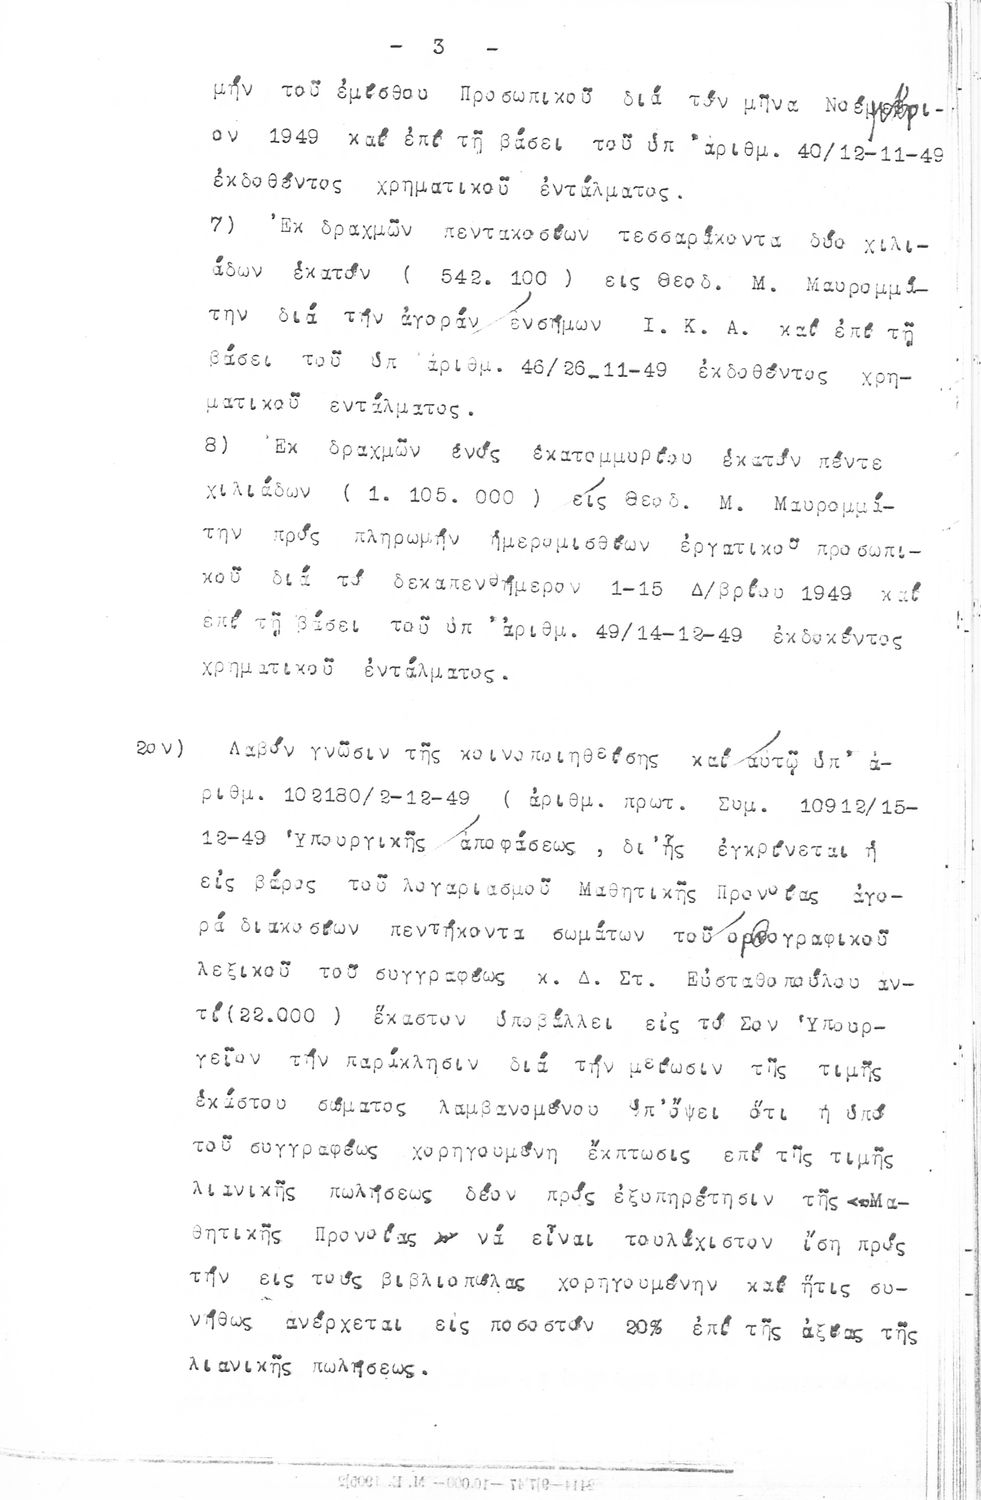 - 3 -
μήν τοῦ ἐμίσθου Προσωπικοῦ διά τόν μῆνα Νοέμβρι-
ον 1949 καί ἐπί τῇ βάσει τοῦ ὑπ 'ἀριθμ. 40/12-11-49
ἐκδοθέντος χρηματικοῦ ἐντάλματος.
7) 'Εκ δραχμῶν πεντακοσίων τεσσαράκοντα δύο χιλι-
άδων ἑκατόν ( 542. 100 ) εις Θεοδ. Μ. Μαυρομμά-
την διά τήν ἀγοράν ἐνσήμων Ι. Κ. Α. καί ἐπί τῇ
βάσει τοῦ ὑπ 'ἀριθμ. 46/26_11-49 ἐκδοθέντος χρη-
ματικοῦ εντάλματος.
8) 'Εκ δραχμῶν ἑνός ἑκατομμυρίου ἑκατόν πέντε
χιλιάδων ( 1. 105. 000 ) εἰς Θεοδ. Μ. Μαυρομμά-
την πρός πληρωμήν ἡμερομισθίων ἐργατικοῦ προσωπι-
κοῦ διά τό δεκαπενθήμερον 1-15 Δ/βρίου 1949 καί
επί τῇ βάσει τοῦ ὑπ 'ἀριθμ. 49/14-12-49 ἐκδοκέντος
χρηματικοῦ ἐντάλματος.
2ον) Λαβόν γνῶσιν τῆς κοινοποιηθείσης καί αὐτῷ ὑπ' ἀ-
ριθμ. 102180/2-12-49 ( ἀριθμ. πρωτ. Συμ. 10912/15-
12-49 'Υπουργικῆς ἀποφάσεως , δι'ἧς ἐγκρίνεται ἡ
εἰς βάρος τοῦ λογαριασμοῦ Μαθητικῆς Προνοίας ἀγο-
ρά διακοσίων πεντήκοντα σωμάτων τοῦ ορθογραφικοῦ
λεξικοῦ τοῦ συγγραφέως κ. Δ. Στ. Εὐσταθοπούλου αν-
τί(22.000 ) ἕκαστον ὑποβάλλει εἰς τό Σον 'Υπουρ-
γεῖον τήν παράκλησιν διά τήν μείωσιν τῆς τιμῆς
ἑκάστου σώματος λαμβανομένου ὑπ'ὄψει ὅτι ἡ ὑπό
τοῦ συγγραφέως χορηγουμένη ἔκπτωσις επί τῆς τιμῆς
λιανικῆς πωλήσεως δέον πρός ἐξυπηρέτησιν τῆς «Μα-
θητικῆς Προνοίας » νά εἶναι τουλάχιστον ἴση πρός
τήν εις τούς βιβλιοπώλας χορηγουμένην καί ἥτις συ-
νήθως ανέρχεται εἰς ποσοστόν 20% ἐπί τῆς ἀξίας τῆς
λιανικῆς πωλήσεως.